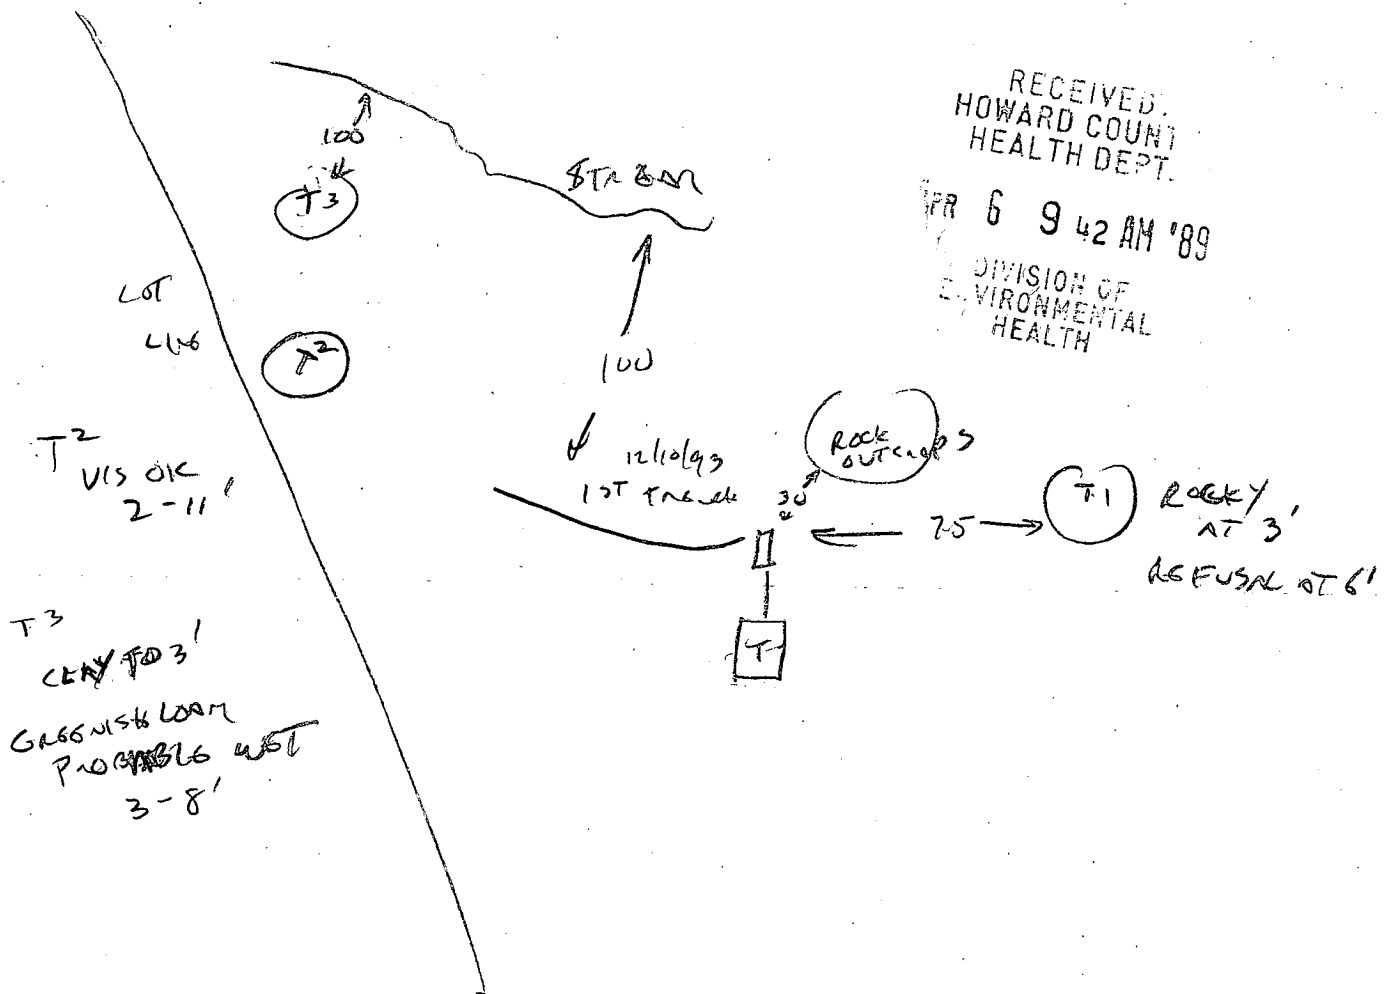 RECEIVED.
HOWARD COUNT
HEALTH DEPT.
APR 6 9 42 AM '89
DIVISION OF
ENVIRONMENTAL
HEALTH
100
T3
STREAM
LOT
LINE
T2
100
T2
VIS OK
2-11'
12/10/93
1ST TRENCH
ROCK
OUTCROPS
30
75
T1
ROCKY
AT 3'
REFUSAL AT 6'
T
T3
CLAY TO 3'
GREENISH LOAM
PROBABLE WET
3-8'